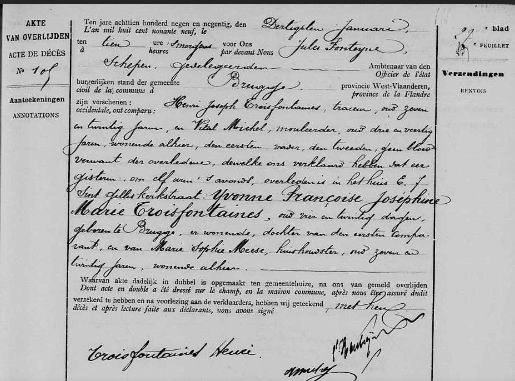 AKTE
VAN OVERLIJDEN
ACTE DE DÉCÈS
No 105
Aanteekeningen
ANNOTATIONS
Ten jare achttien honderd negen en negentig, den Dertigsten Januari,
L'an mil huit cent nonante neuf, le
ten tien ure 's morgens voor Ons Jules Fonteyne
à heures par devant Nous
Schepen, gedelegeerden Ambtenaar van den
Officier de l'état
burgerlijken stand der gemeente Brugge provincie West-Vlaanderen,
civil de la commune d province de la Flandre
zijn verschenen: Henri Joseph Troisfontaines, traceur, oud zeven
occidentale, ont comparu:
en twintig jaren, en Vital Michel, mouleerder, oud drie en veertig
jaren, wonende alhier, den eersten vader, den tweeden, geen bloed
verwant der overledene, dewelke ons verklaard hebben dat eer
gisteren, om elf uren 's avonds, overleden is in het huis E. 7
Sint Gilleskerkstraat: Yvonne Françoise Joséphine
Marie Troisfontaines, oud vier en twintig dagen,
geboren te Brugge, er wonende, dochter van den eersten compa
rant, en van Marie Sophie Meese, huishoudster, oud zeven en
twintig jaren, wonende alhier.
Waarvan akte dadelijk in dubbel is opgemaakt ten gemeentehuize, na ons van gemeld overlijden
Dont acte en double a été dressé sur le champ, en la maison commune, après nous être assuré dudit
verzekerd te hebben en na voorlezing aan de verklaarders, hebben wij geteekend, met hen
décès et après lecture faite aux déclarants, nous avons signé
Troisfontaines Henri.
blad
FEUILLET
Verzendingen
RENVOIS